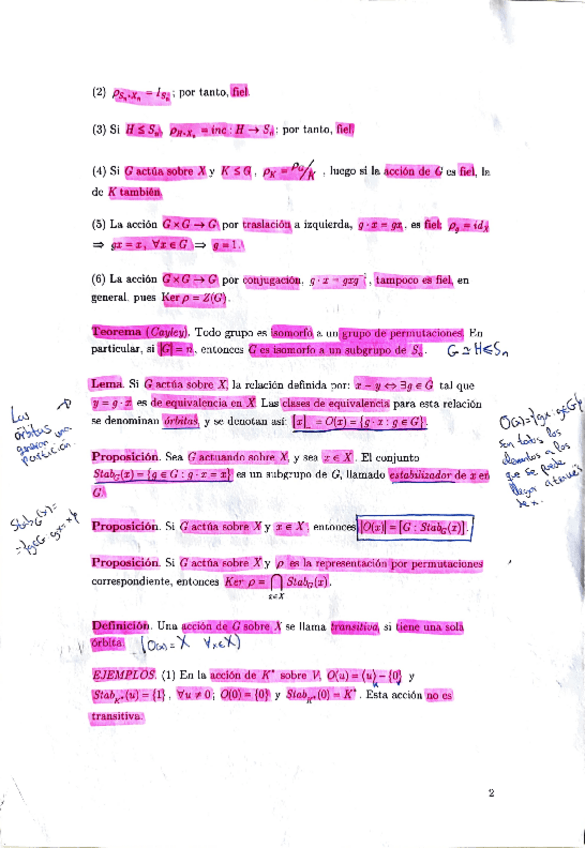 (2) ρ_{Sₙ,Xₙ} = I_{Sₙ} ; por tanto, fiel.
(3) Si H ≤ Sₙ, ρ_{H,Xₙ} = inc : H → Sₙ; por tanto, fiel.
(4) Si G actúa sobre X y K ≤ G , ρ_K = ρ_G/K , luego si la acción de G es fiel, la
de K también.
(5) La acción G × G → G por traslación a izquierda, g · x = gx, es fiel: ρ_g = id_X
⇒ gx = x, ∀x ∈ G ⇒ g = 1.
(6) La acción G × G → G por conjugación, g · x = gxg⁻¹, tampoco es fiel, en
general, pues Ker ρ = Z(G).
Teorema (Cayley). Todo grupo es isomorfo a un grupo de permutaciones. En
particular, si |G| = n, entonces G es isomorfo a un subgrupo de Sₙ. G ≃ H ≤ Sₙ
Lema. Si G actúa sobre X, la relación definida por: x ~ y ⇔ ∃g ∈ G tal que
y = g · x es de equivalencia en X. Las clases de equivalencia para esta relación
se denominan órbitas, y se denotan así: [x]_~ = O(x) = {g · x : g ∈ G}.
Las
órbitas
generan una
partición.
O(x)={gx : g∈G}
son todos los
elementos a los
que se puede
llegar a través
de x.
Proposición. Sea G actuando sobre X, y sea x ∈ X. El conjunto
Stab_G(x) = {g ∈ G : g · x = x} es un subgrupo de G, llamado estabilizador de x en
G.
Stab_G(x)=
={g∈G gx=x}
Proposición. Si G actúa sobre X y x ∈ X, entonces |O(x)| = [G : Stab_G(x)].
Proposición. Si G actúa sobre X y ρ es la representación por permutaciones
correspondiente, entonces Ker ρ = ⋂_{x∈X} Stab_G(x).
Definición. Una acción de G sobre X se llama transitiva, si tiene una sola
órbita. (O(x) = X ∀x∈X)
EJEMPLOS. (1) En la acción de K* sobre V, O(u) = ⟨u⟩ − {0} y
Stab_{K*}(u) = {1} , ∀u ≠ 0; O(0) = {0} y Stab_{K*}(0) = K* . Esta acción no es
transitiva.
2